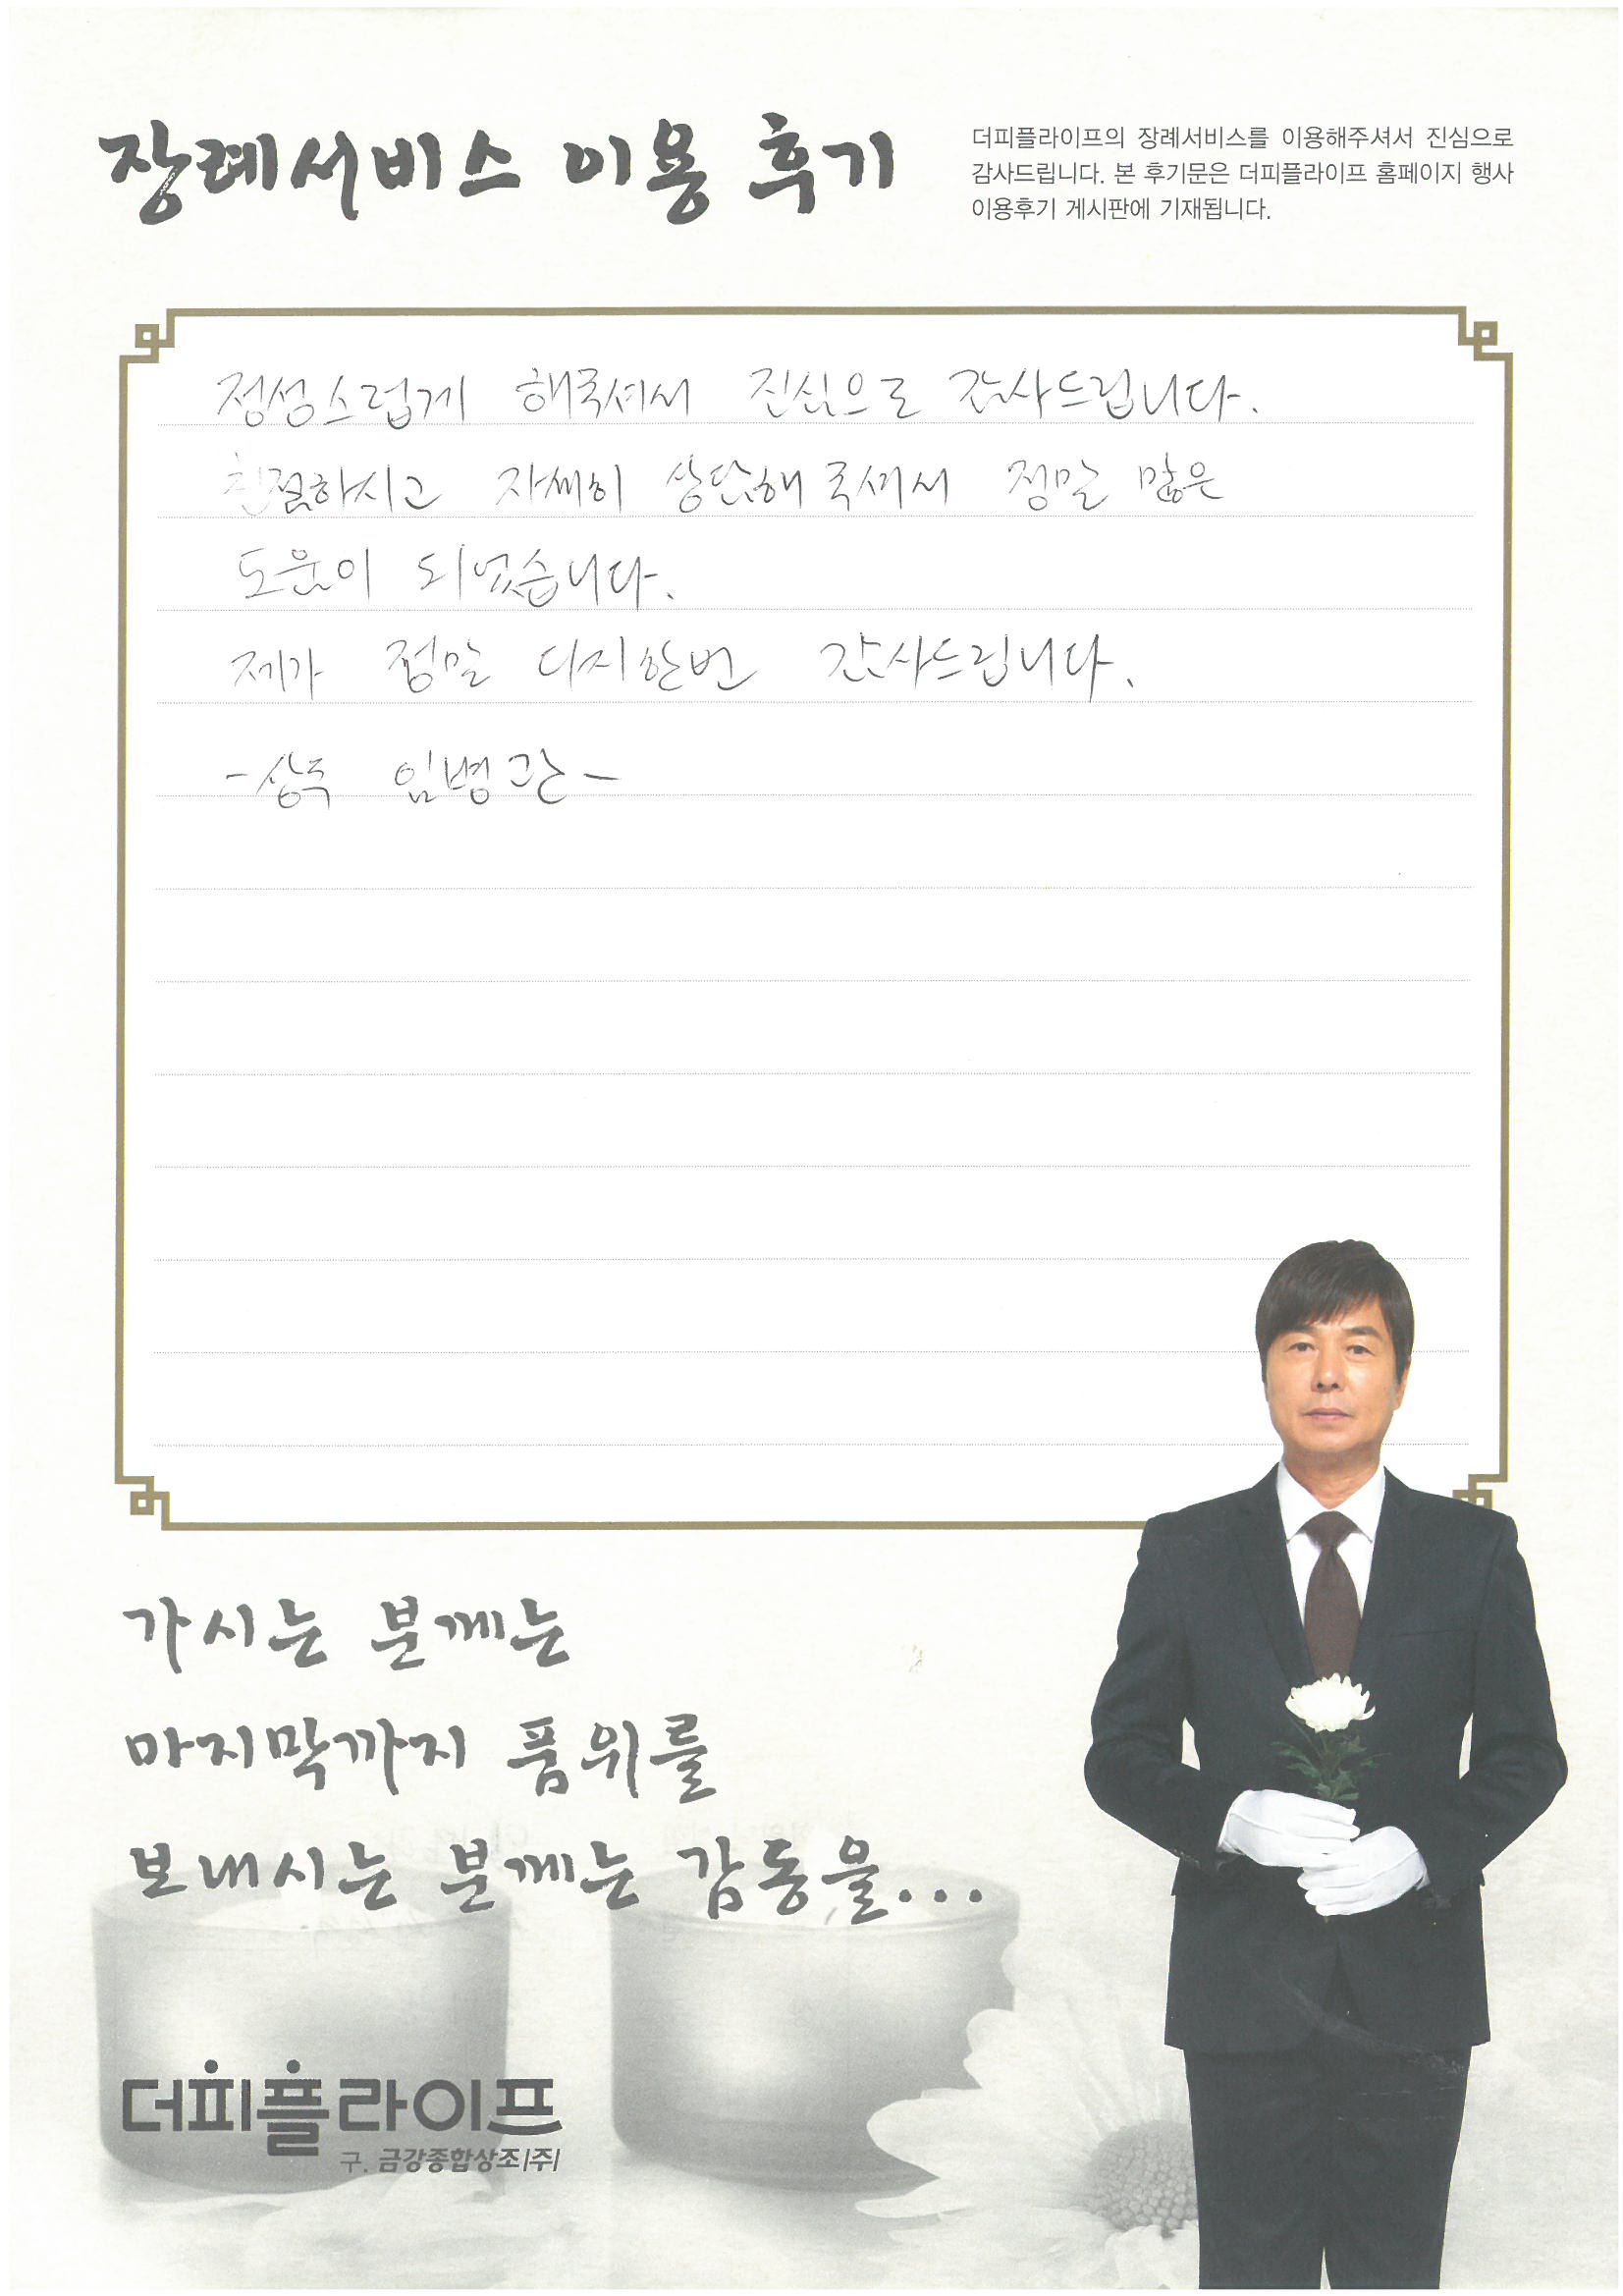 장례서비스 이용 후기
더피플라이프의 장례서비스를 이용해주셔서 진심으로
감사드립니다. 본 후기문은 더피플라이프 홈페이지 행사
이용후기 게시판에 기재됩니다.
정성스럽게 해주셔서 진심으로 감사드립니다.
친절하시고 자세히 상담해 주셔서 정말 많은
도움이 되었습니다.
제가 정말 다시한번 감사드립니다.
-상주 임병관-
가시는 분께는
마지막까지 품위를
보내시는 분께는 감동을...
더피플라이프
구. 금강종합상조|주|